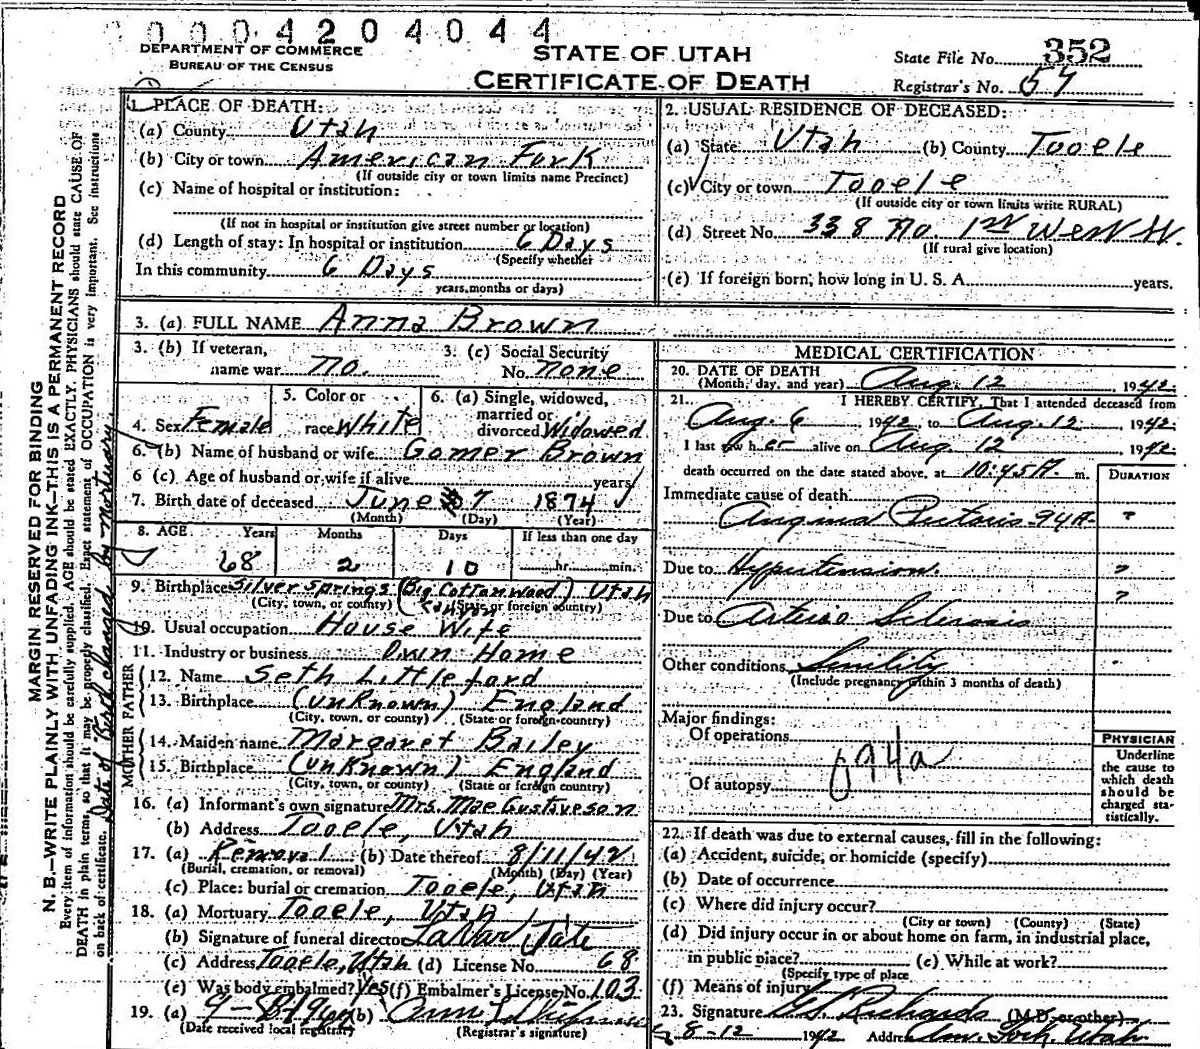 0 0 0 4 2 0 4 0 4 4
DEPARTMENT OF COMMERCE
BUREAU OF THE CENSUS
STATE OF UTAH
CERTIFICATE OF DEATH
State File No. 352
Registrar's No. 57
MARGIN RESERVED FOR BINDING
N. B.—WRITE PLAINLY WITH UNFADING INK—THIS IS A PERMANENT RECORD
Every item of information should be carefully supplied. AGE should be stated EXACTLY. PHYSICIANS should state CAUSE OF
DEATH in plain terms, so that it may be properly classified. Exact statement of OCCUPATION is very important. See instructions
on back of certificate. Date of Birth changed by Mortuary
1. PLACE OF DEATH:
(a) County Utah
(b) City or town American Fork
(If outside city or town limits name Precinct)
(c) Name of hospital or institution:
(If not in hospital or institution give street number or location)
(d) Length of stay: In hospital or institution 6 Days
(Specify whether
In this community 6 Days
years, months or days)
2. USUAL RESIDENCE OF DECEASED:
(a) State Utah (b) County Tooele
(c) City or town Tooele
(If outside city or town limits write RURAL)
(d) Street No. 338 No. 1st West St.
(If rural give location)
(e) If foreign born, how long in U. S. A. years.
3. (a) FULL NAME Anna Brown
3. (b) If veteran, name war no.
3. (c) Social Security No. none
4. Sex Female
5. Color or race White
6. (a) Single, widowed, married or divorced Widowed
6. (b) Name of husband or wife Gomer Brown
6 (c) Age of husband or wife if alive years
7. Birth date of deceased June 7 1874
(Month) (Day) (Year)
8. AGE Years Months Days If less than one day
68 2 10 hr. min.
9. Birthplace Silver Springs (Big Cottonwood) Utah
(City, town, or county) (State or foreign country)
10. Usual occupation House Wife
11. Industry or business Own Home
FATHER
12. Name Seth Littleford
13. Birthplace (unknown) England
(City, town, or county) (State or foreign country)
MOTHER
14. Maiden name Margaret Bailey
15. Birthplace (unknown) England
(City, town, or county) (State or foreign country)
16. (a) Informant's own signature Mrs. Mae Gustaveson
(b) Address Tooele, Utah
17. (a) Removal (b) Date thereof 8/11/42
(Burial, cremation, or removal) (Month) (Day) (Year)
(c) Place: burial or cremation Tooele, Utah
18. (a) Mortuary Tooele, Utah
(b) Signature of funeral director LaVar Tate
(c) Address Tooele, Utah (d) License No. 68
(e) Was body embalmed? Yes (f) Embalmer's License No. 103
19. (a) (b) Ann
(Date received local registrar) (Registrar's signature)
MEDICAL CERTIFICATION
20. DATE OF DEATH
(Month, day, and year) Aug. 12, 1942.
21. I HEREBY CERTIFY, That I attended deceased from
Aug. 6 1942 to Aug. 12, 1942.
I last saw her alive on Aug. 12 1942
death occurred on the date stated above, at 10:45A. m.
DURATION
Immediate cause of death
Angina Pectoris 94A ?
Due to Hypertension. ?
?
Due to Arterio Sclerosis
Other conditions Senility
(Include pregnancy within 3 months of death)
Major findings:
Of operations
094a
Of autopsy
PHYSICIAN
Underline
the cause to
which death
should be
charged sta-
tistically.
22. If death was due to external causes, fill in the following:
(a) Accident, suicide, or homicide (specify)
(b) Date of occurrence
(c) Where did injury occur?
(City or town) (County) (State)
(d) Did injury occur in or about home on farm, in industrial place,
in public place? (e) While at work?
(Specify type of place
(f) Means of injury
23. Signature G. S. Richards (M.D. or other)
8-12 1942 Address Am. Fork, Utah